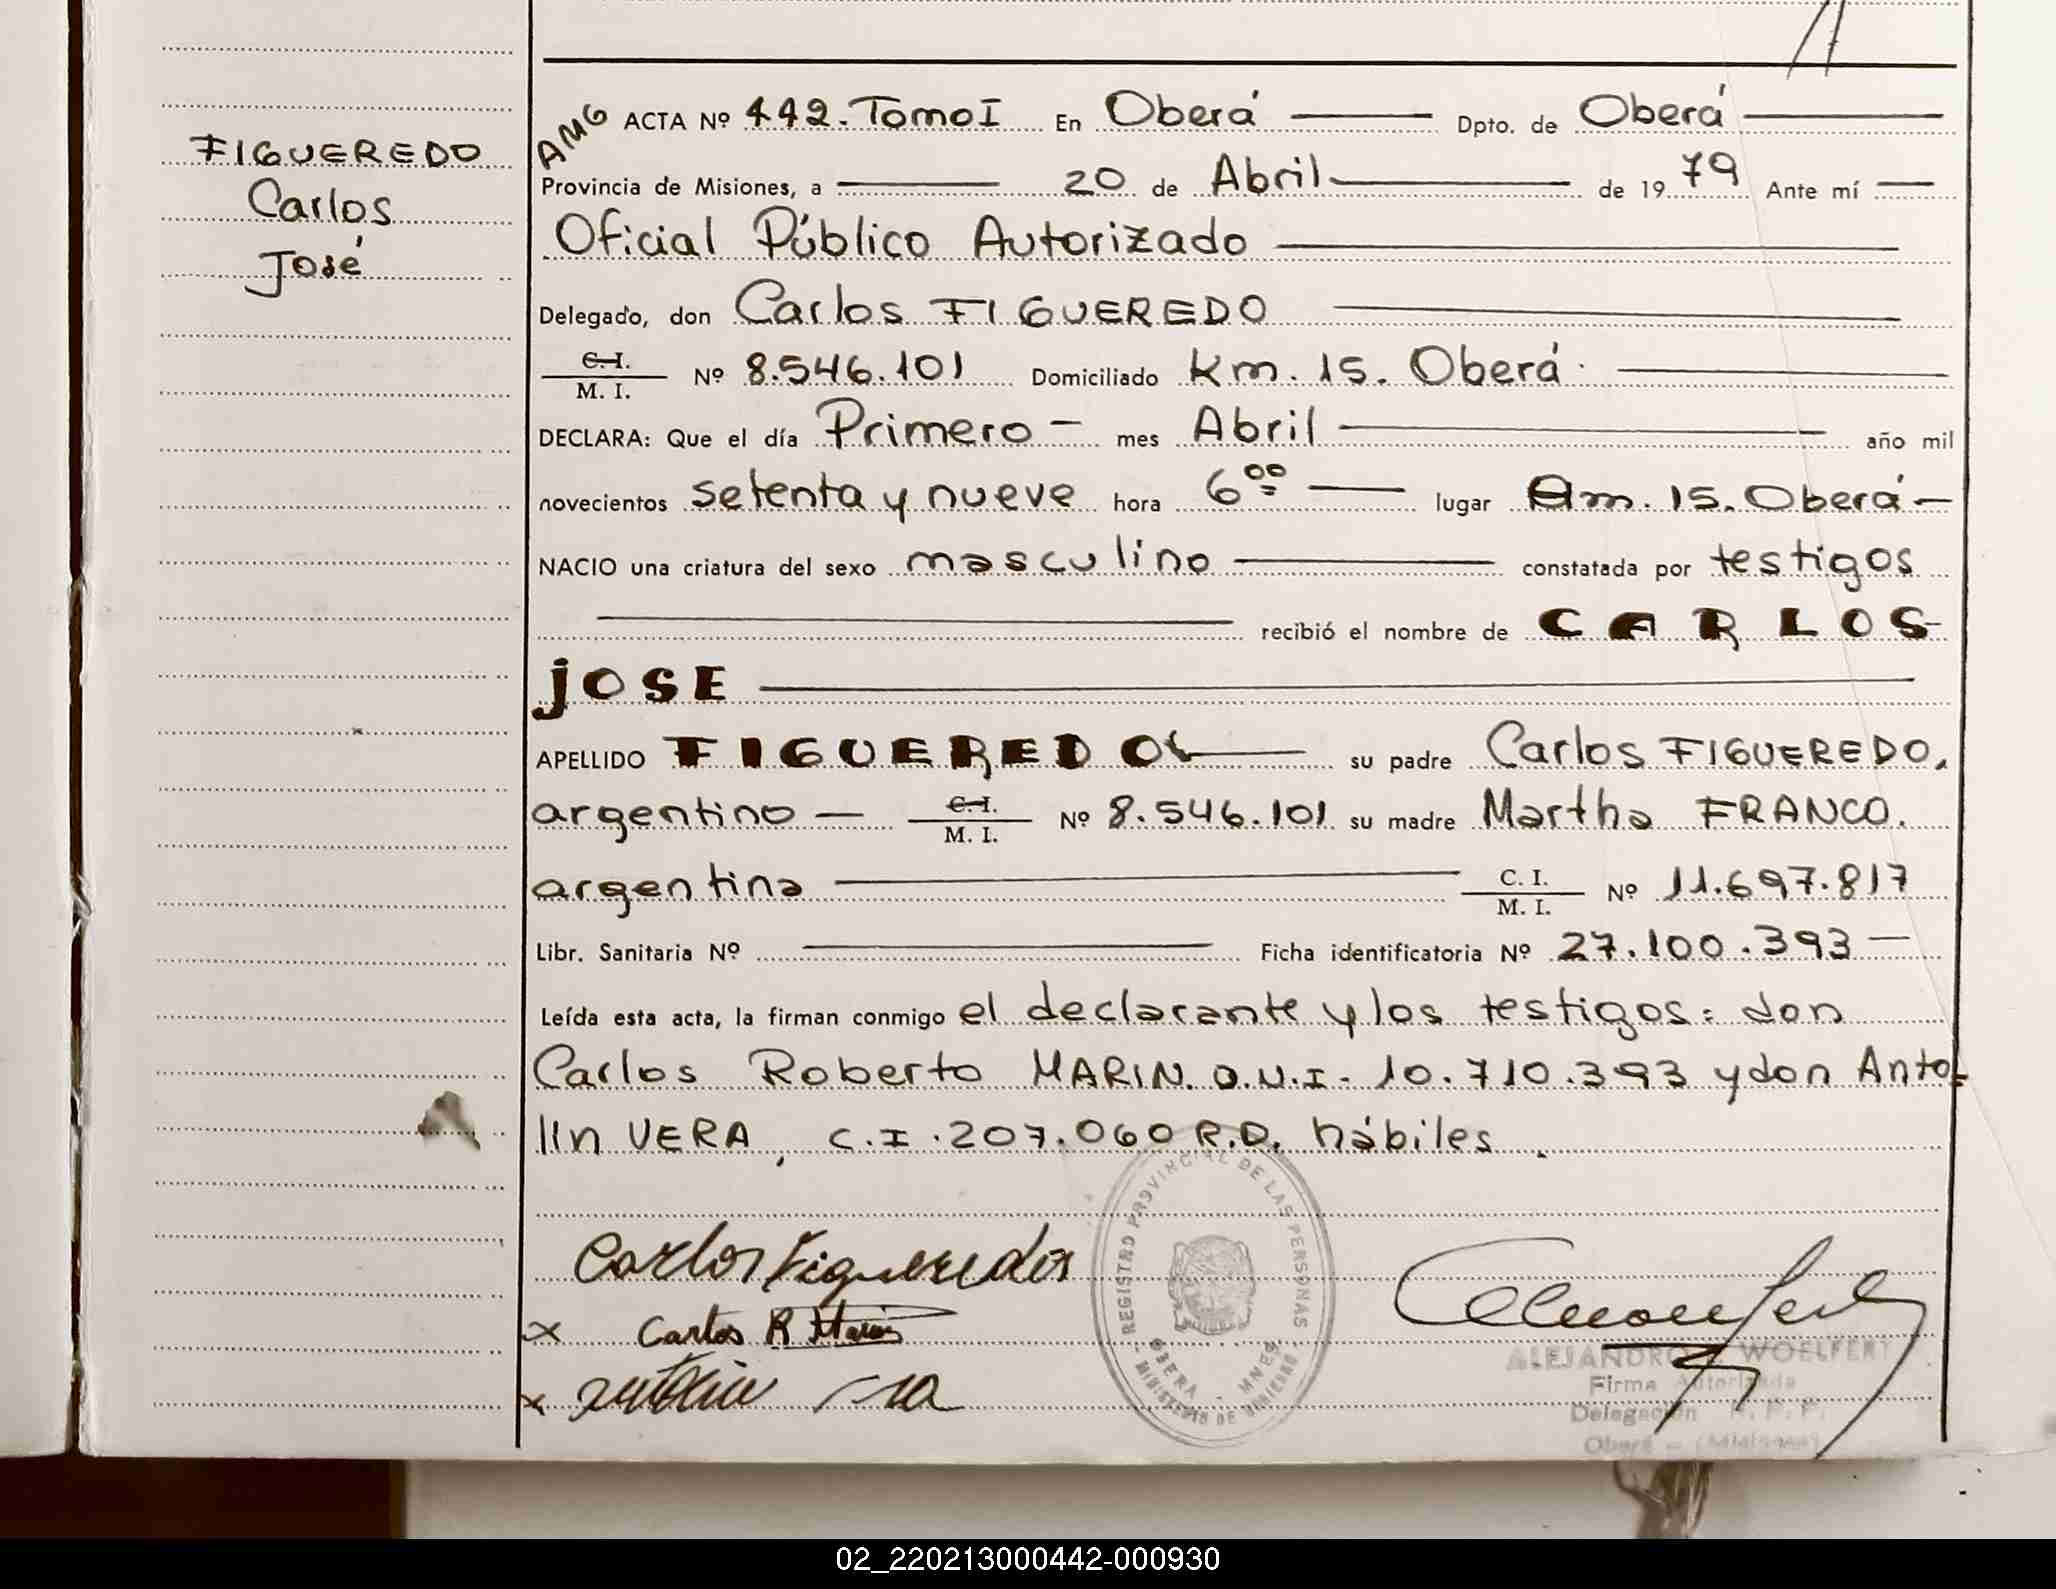 FIGUEREDO
Carlos
José
AMG ACTA Nº 442. Tomo I En Oberá Dpto. de Oberá
Provincia de Misiones, a 20 de Abril de 1979 Ante mí
Oficial Público Autorizado
Delegado, don Carlos FIGUEREDO
C. I. / M. I. Nº 8.546.101 Domiciliado Km. 15. Oberá.
DECLARA: Que el día Primero - mes Abril año mil
novecientos setenta y nueve hora 6 00 lugar Km. 15. Oberá -
NACIO una criatura del sexo masculino constatada por testigos
recibió el nombre de CARLOS
JOSE
APELLIDO FIGUEREDO su padre Carlos FIGUEREDO,
argentino — C. I. / M. I. Nº 8.546.101 su madre Martha FRANCO.
argentina C. I. / M. I. Nº 11.697.817
Libr. Sanitaria Nº Ficha identificatoria Nº 27.100.393 —
Leída esta acta, la firman conmigo el declarante y los testigos: don
Carlos Roberto MARIN. D.N.I. 10.710.393 y don Anto-
lin VERA, C.I. 207.060 R.D. hábiles.
REGISTRO PROVINCIAL DE LAS PERSONAS
OBERA - MNES.
MINISTERIO DE GOBIERNO
Carlos Figueredo
x Carlos R Marin
x
ALEJANDRO WOELFERT
Firma Autorizada
Delegación R. P. P.
Oberá - (Misiones)
02_220213000442-000930